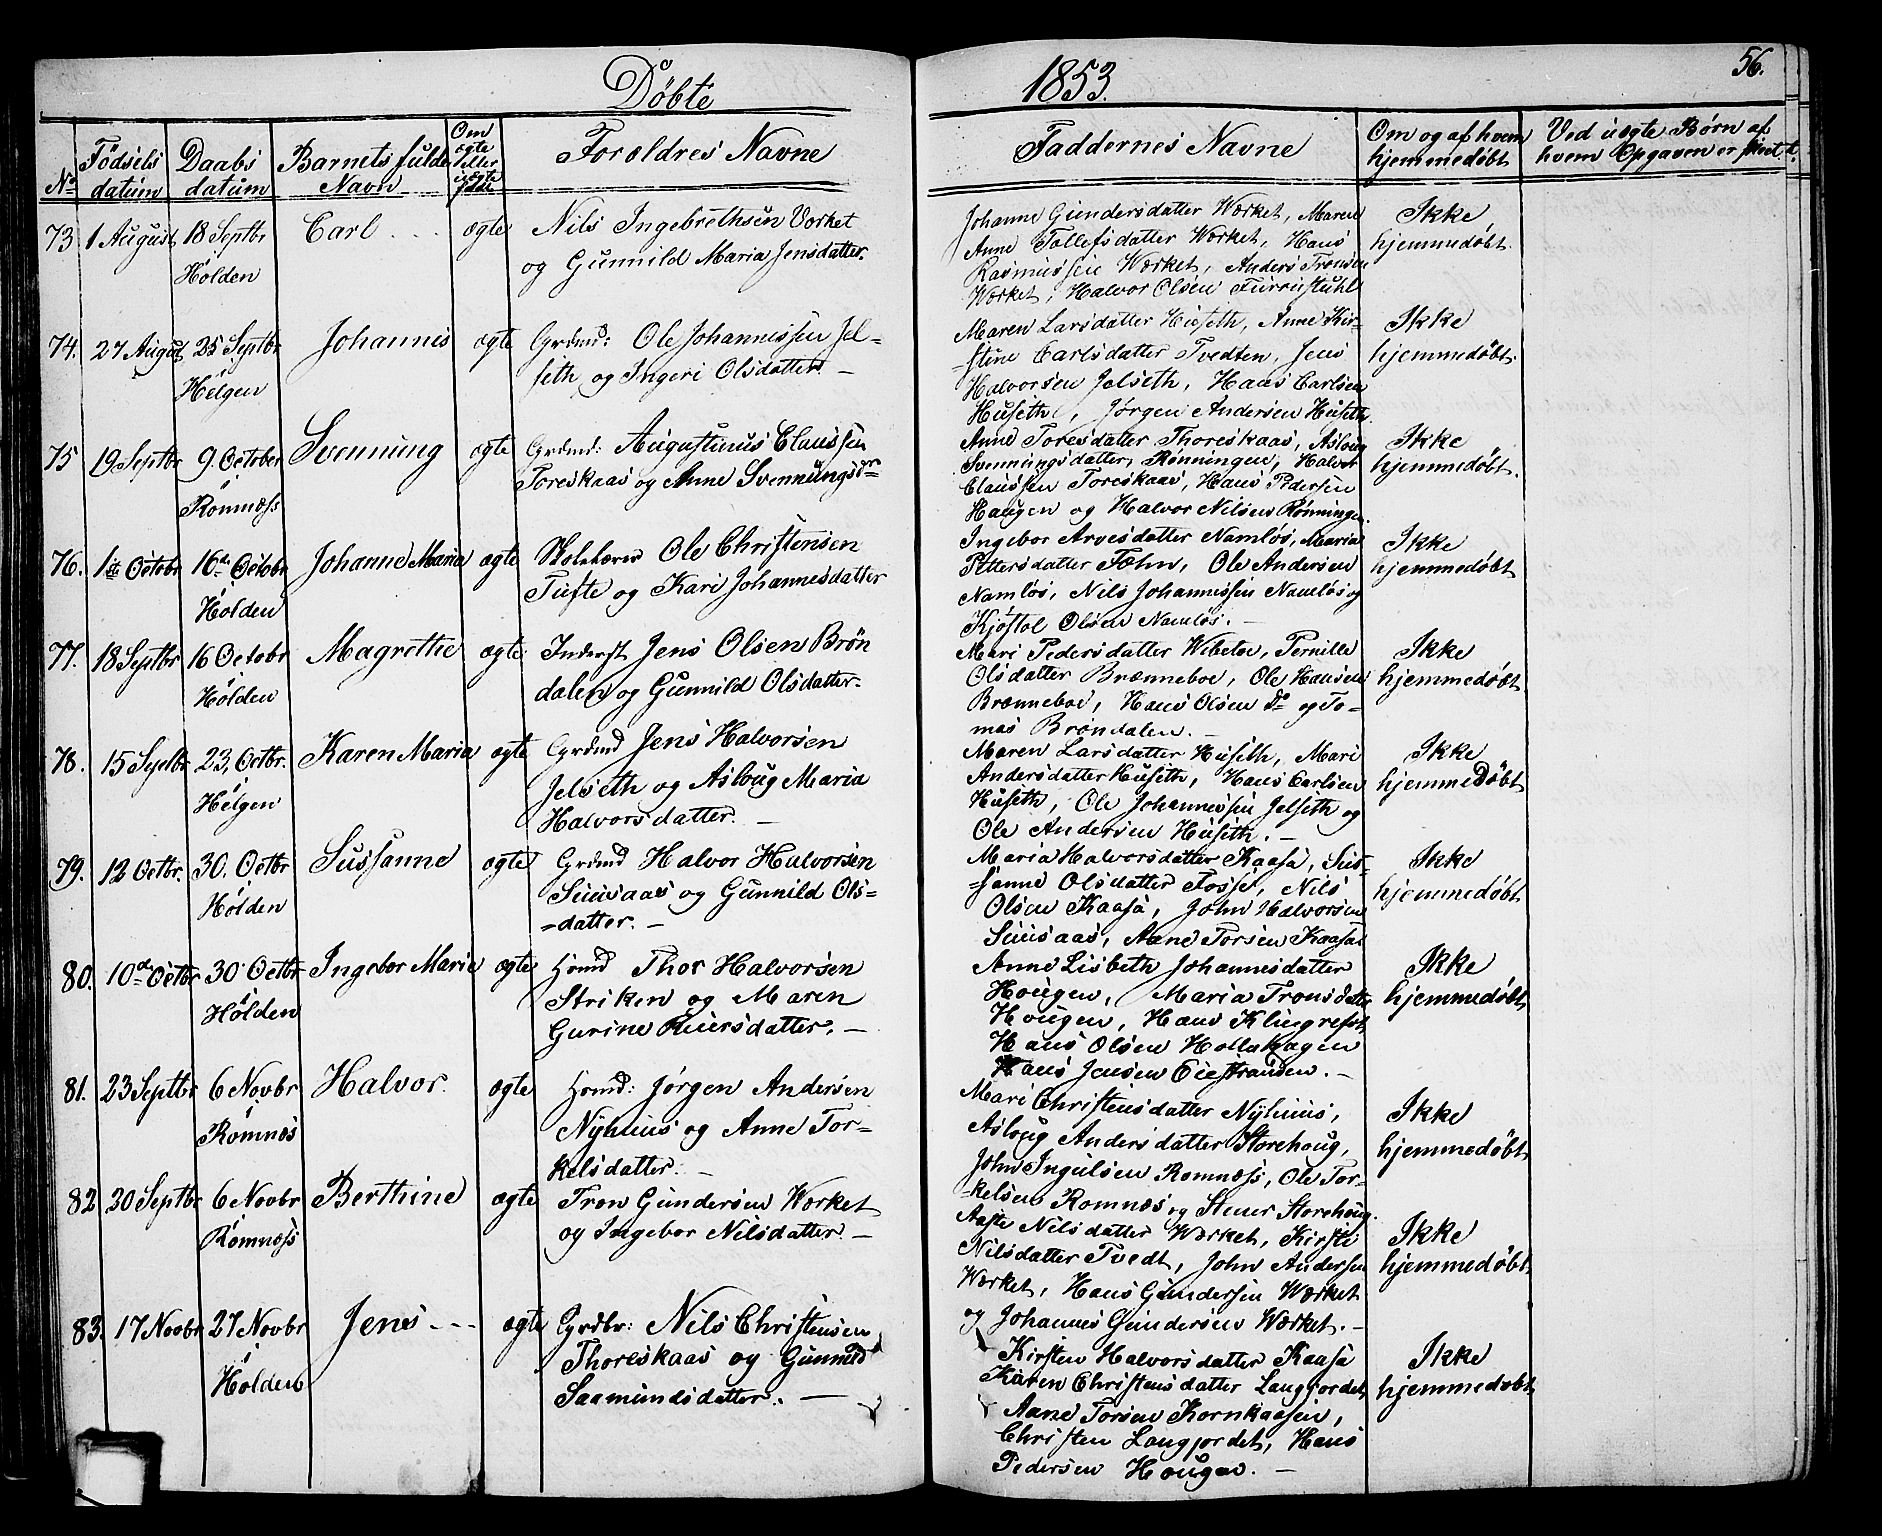 Döbte
1853.
56.
No
Födsels datum
Daabs datum
Barnets fulde Navn
Om ægte eller uægte født
Forældres Navne
Faddernes Navne
Om og af hvem hjemmedøbt
Ved uægte Børn af hvem Opgaven er skeet
73 1 August 18 Septbr Holden
Carl
ægte
Nils Ingebrethsen Værket
og Gunnild Maria Jensdatter.
Johanne Gundersdatter Værket, Maren
Anne Tollefsdatter Værket, Hans
Rasmussen Værket, Anders Tronsen
Værket, Halvor Olsen Furrustuhl
Ikke
hjemmedøbt.
74. 27 August 25 Septbr Helgen
Johannis
ægte
Grdmd: Ole Johannissen Jel-
seth og Ingeri Olsdatter. -
Maren Larsdatter Huseth, Anne Kir-
-stine Carlsdatter Tvedten, Jens
Halvorsen Jelseth, Hans Carlsen
Huseth, Jørgen Andersen Huseth
Ikke
hjemmedøbt.
75 19 Septbr 9 October Romnæss
Svenning
ægte
Grdmd: Augustinus Claussen
Toreskaas og Anne Svennungsdr
Anne Toresdatter Thoreskaas, Asloug
Svenningsdatter Rønningen, Halvor
Claussen Toreskaas, Hans Pedersen
Haugen og Halvor Nilsen Rønningen.
Ikke
hjemmedøbt.
76. 1ste Octobr 16de Octobr Holden
Johanne Maria
ægte
Skolelærer Ole Christensen
Tufte og Kari Johannesdatter
Ingebor Arvesdatter Namløs, Maria
Pettersdatter Fæhn, Ole Andersen
Namløs, Nils Johannissen Namløs og
Kjøstol Olsen Namløs. -
Ikke
hjemmedøbt
77. 18 Septbr 16 Octobr Holden
Magrethe
ægte
Inderst Jens Olsen Brøn
dalen og Gunnild Olsdatter-
Mari Pedersdatter Vibetoe, Pernille
Olsdatter Brænneboe, Ole Hansen
Brænneboe, Hans Olsen do og To-
mas Brøndalen. -
Ikke
hjemmedøbt
78. 15 Septbr 23, Octbr. Helgen
Karen Maria
ægte
Grdmd Jens Halvorsen
Jelseth og Asloug Maria
Halvorsdatter. -
Maren Larsdatter Huseth, Mari
Andersdatter Huseth, Hans Carlsen
Huseth, Ole Johannissen Jelseth og
Ole Andersen Huseth. -
Ikke
hjemmedøbt
79. 12 Octbr. 30. Octbr Holden
Sussanne
ægte
Grdmd Halvor Halvorsen
Siiisaas og Gunnild Ols-
-datter. -
Maria Halvorsdatter Kaasa, Sus-
-sanne Olsdatter Fosse, Nils
Olsen Kaasa, John Halvorsen
Siiisaas, Aane Torsen Kaasa
Ikke
hjemmedøbt
80. 10de Octbr 30 Octbr Holden
Ingebor Marie
ægte
Hsmd Thor Halvorsen
Striken og Maren
Gurine Reiersdatter. -
Anne Lisbeth Johannesdatter
Hougen, Maria Tronsdatter
Hougen, Hans
Hans Olsen Hollahagen
Hans Jensen Eiestranden. -
Ikke
hjemmedøbt
81. 23 Septbr 6 Novbr Romnæs
Halvor.
ægte
Hsmd: Jørgen Andersen
Nyhuus og Anne Tor-
kelsdatter. -
Mari Christensdatter Nyhuus,
Asloug Andersdatter Storehoug,
John Ingulsen Romnæss, Ole Tor-
-kelsen Romnæs og Stener Storehoug.
Ikke
hjemmedøbt
82 20 Septbr 6 Novbr Romnæss
Berthine
ægte
Tron Gundersen Værket
og Ingebor Nilsdatter. -
Aaste Nilsdatter Værket, Kirsti
Nilsdatter Tvedt, John Andersen
Værket, Hans Gundersen Værket
og Johannes Gundersen Værket. -
Ikke
hjemmedøbt
83. 17 Novbr 27 Novbr Holden
Jens
ægte
Grdbr: Nils Christensen
Thoreskaas og Gunnild
Saamundsdatter. -
Kirsten Halvorsdatter Kaasa
Karen Christensdatter Langfjordet,
Aane Torsen Kornkaasen,
Christen Langfjordet, Hans
Pedersen Hougen. -
Ikke
hjemmedøbt